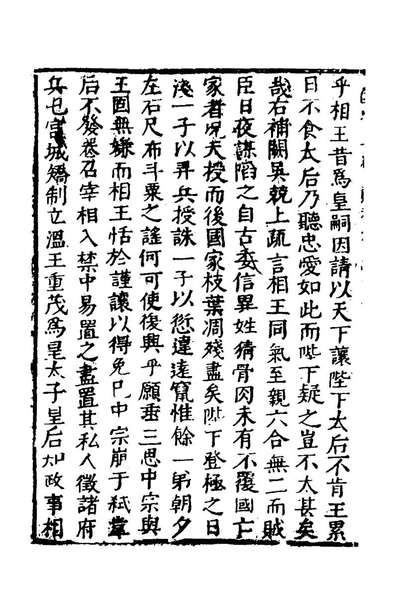 乎相王昔爲皇嗣因請以天下讓陛下太后不肯王累
日不食太后乃聽忠愛如此而陛下疑之豈不太甚矣
哉右補闕吳兢上疏言相王同氣至親六合無二而賊
臣日夜謀陷之自古委信異姓猜骨肉未有不覆國亡
家者况天授而後國家枝葉凋殘盡矣陛下登極之日
淺一子以弄兵授誅一子以愆違遠竄惟餘一弟朝夕
左右尺布斗粟之謠何可使復興乎願垂三思中宗與
王固無嫌而相王恬於謹讓以得免已中宗崩于弒韋
后不發喪召宰相入禁中易置之盡置其私人徵諸府
兵屯宫城矯制立溫王重茂爲皇太子皇后知政事相